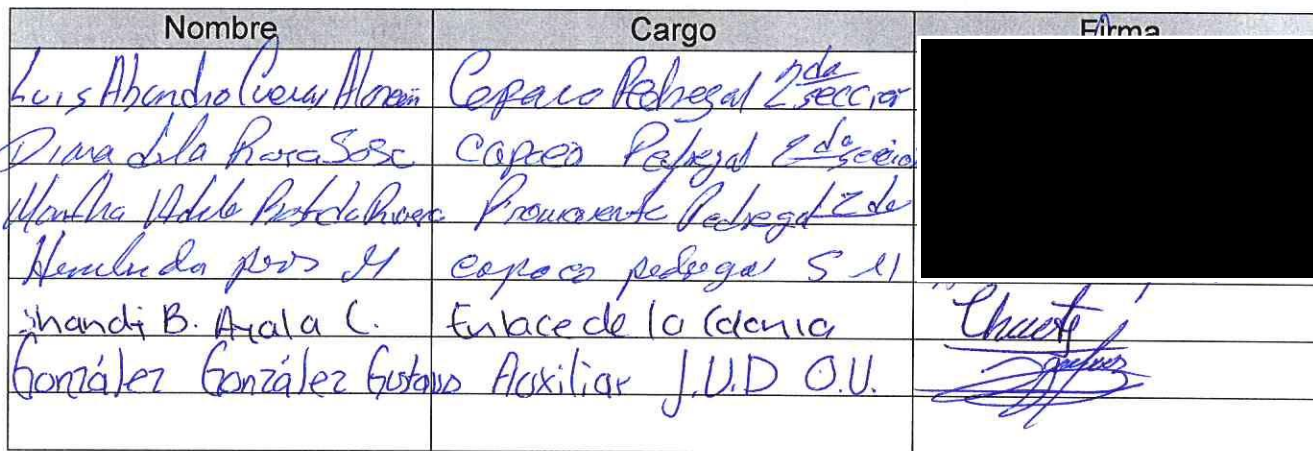 Nombre Cargo Firma
Luis Cuevas Copaco Pedregal 2da sección
Diana de la Rosa Sosa Copaco Pedregal 2da sección
Martha Adela Promovente Pedregal 2da
copaco pedregal S M
B. Ayala C. Enlace de la Colonia
González González Gustavo Auxiliar J.U.D O.U.